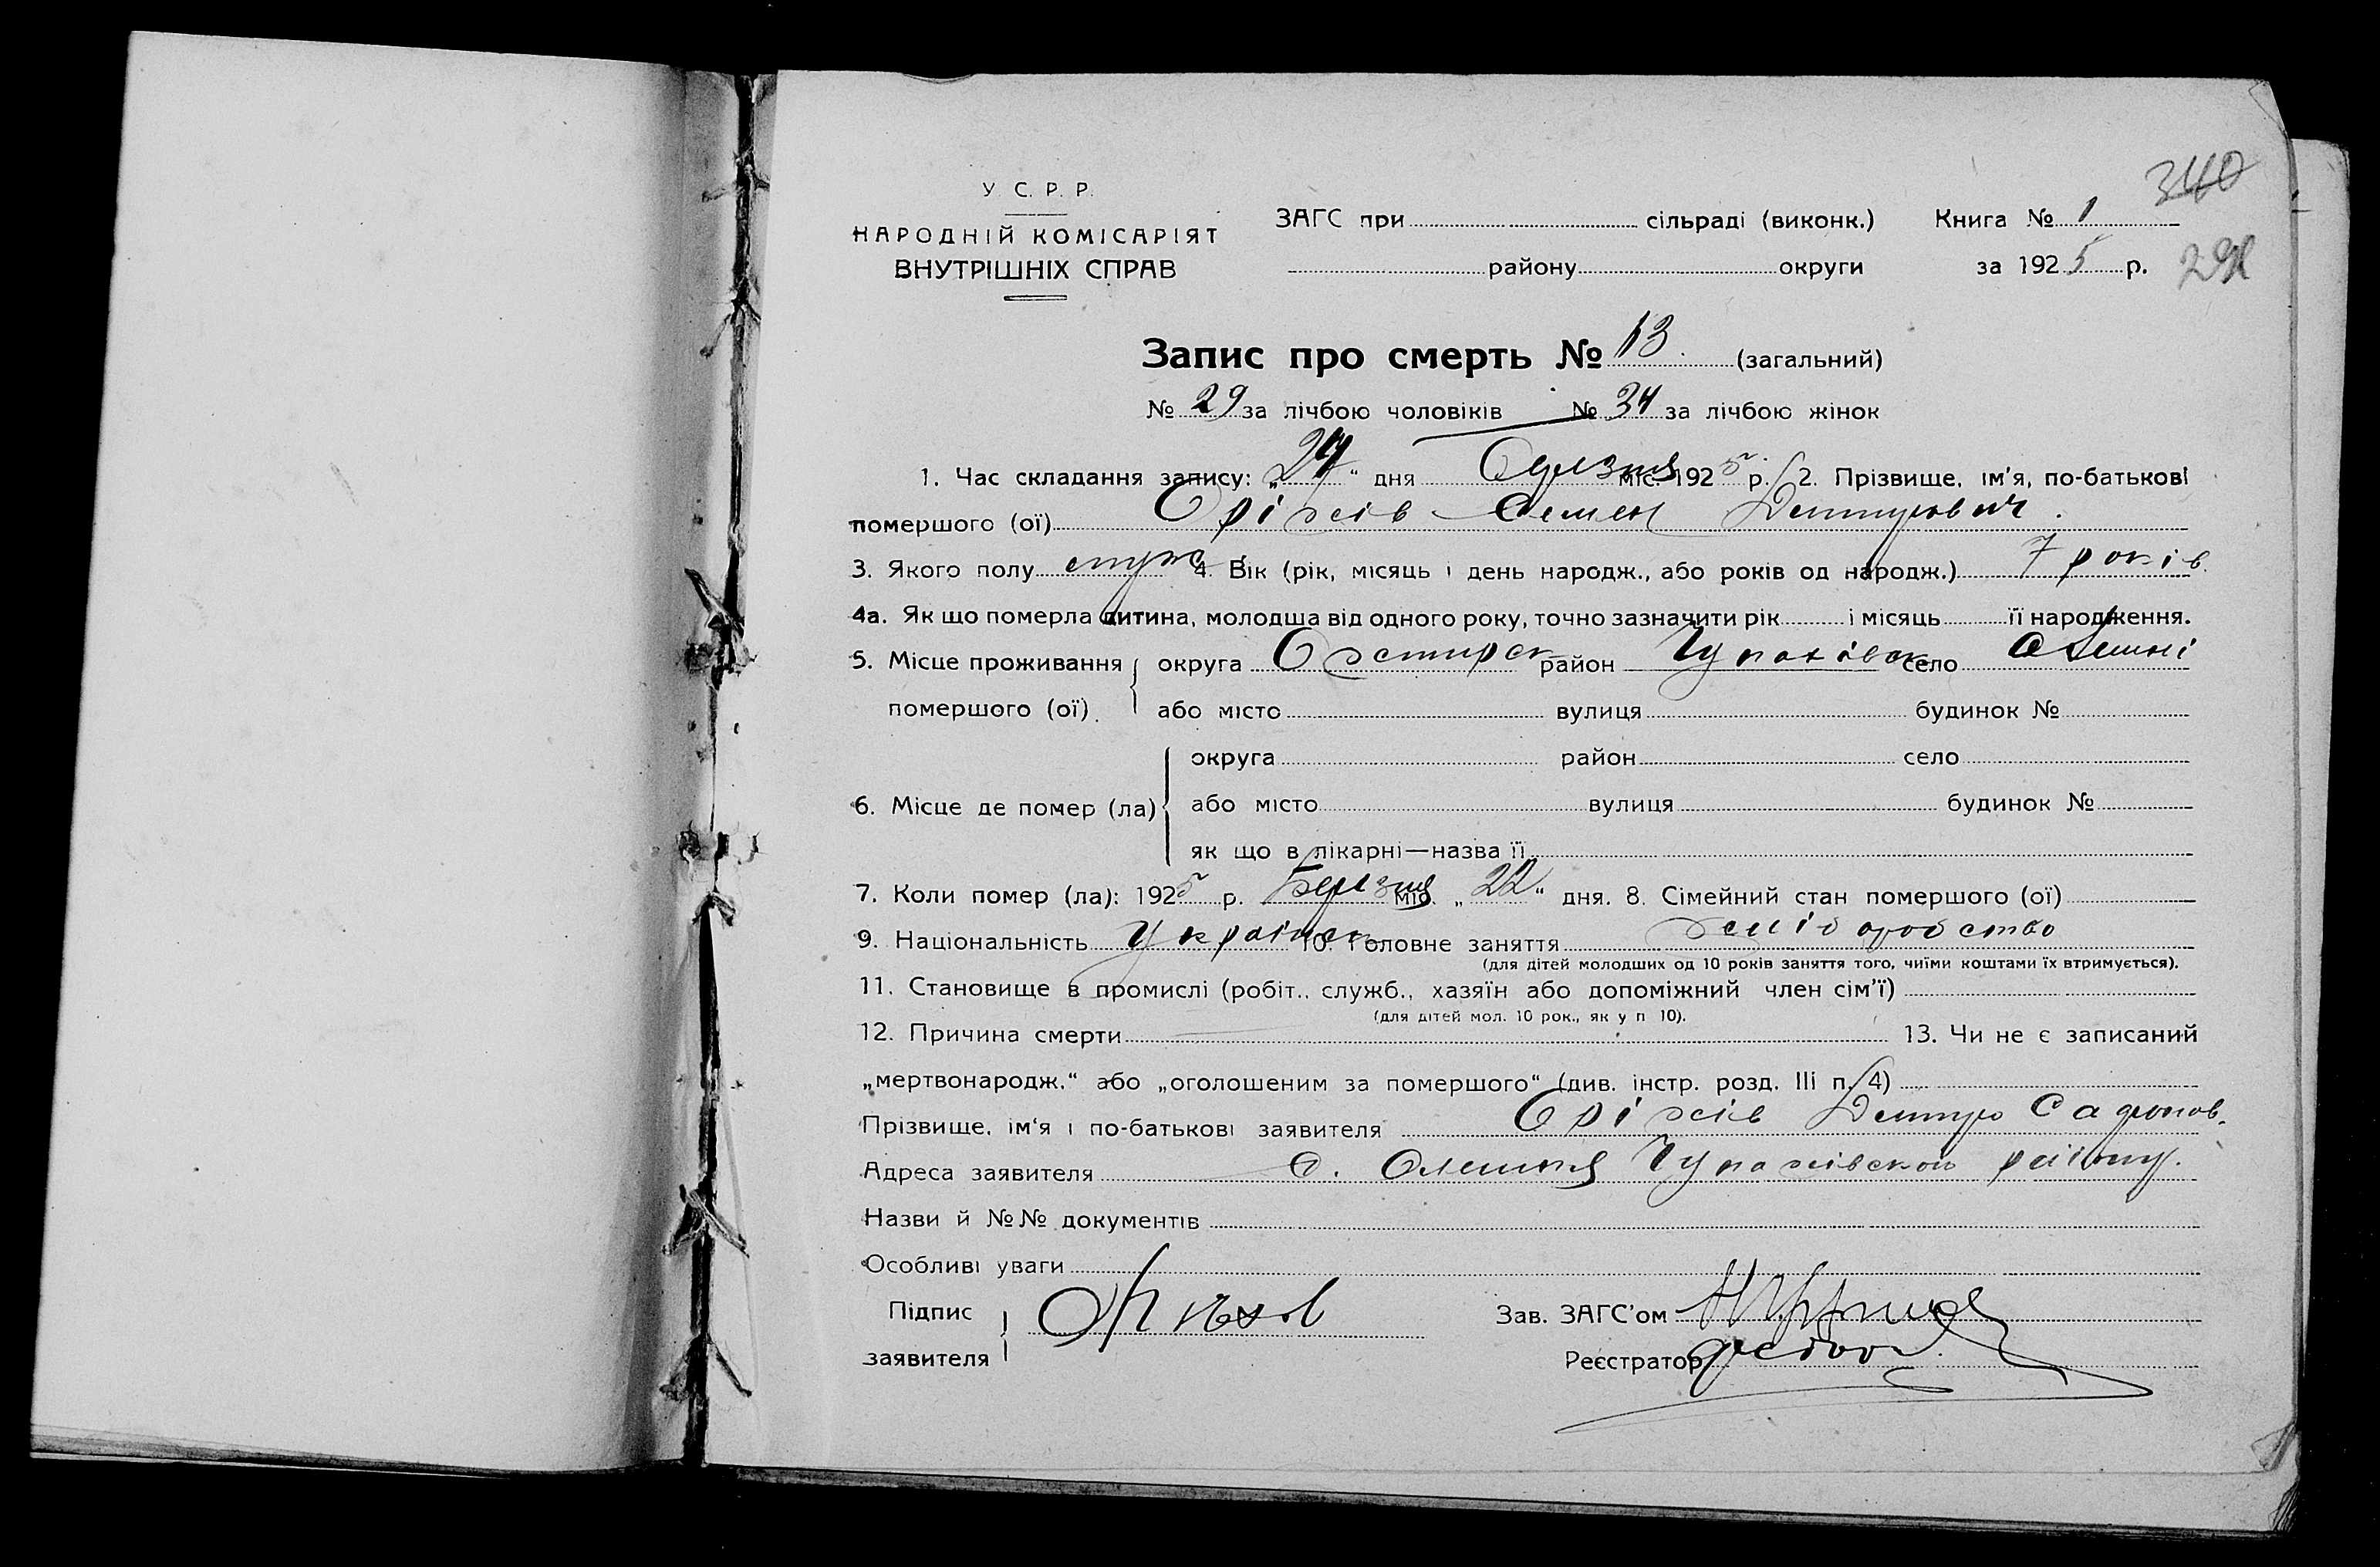 340
У. С. Р. Р.
НАРОДНІЙ КОМІСАРІЯТ
ВНУТРІШНІХ СПРАВ
ЗАГС при сільраді (виконк.) Книга № 1
району округи за 1925 р.
Запис про смерть № 13. (загальний)
№ 29 за лічбою чоловіків № 34 за лічбою жінок
1. Час складання запису: „ “ дня міс. 1925 р. 2. Прізвище, ім'я, по-батькові
помершого (ої) Оріхів Семен Дмитрович.
3. Якого полу 4. Вік (рік, місяць і день народж., або років од народж.) 7 років.
4а. Як що померла дитина, молодша від одного року, точно зазначити рік і місяць її народження.
5. Місце проживання округа Охтирск район Чупахівск село
помершого (ої). або місто вулиця будинок №
округа район село
6. Місце де помер (ла) або місто вулиця будинок №
як що в лікарні—назва її
7. Коли помер (ла): 1925 р. Березня міс. „22“ дня. 8. Сімейний стан помершого (ої)
9. Національність 10. Головне заняття
(для дітей молодших од 10 років заняття того, чиїми коштами їх втримується).
11. Становище в промислі (робіт., служб., хазяїн або допоміжний член сім'ї)
(для дітей мол. 10 рок., як у п 10).
12. Причина смерти 13. Чи не є записаний
„мертвонародж.“ або „оголошеним за помершого“ (див. інстр. розд. III п. 4)
Прізвище, ім'я і по-батькові заявителя Оріхів Дмитро
Адреса заявителя с. Олешня Чупахівскою району.
Назви й №№ документів
Особливі уваги
Підпис
заявителя
Зав. ЗАГС'ом
Реєстратор